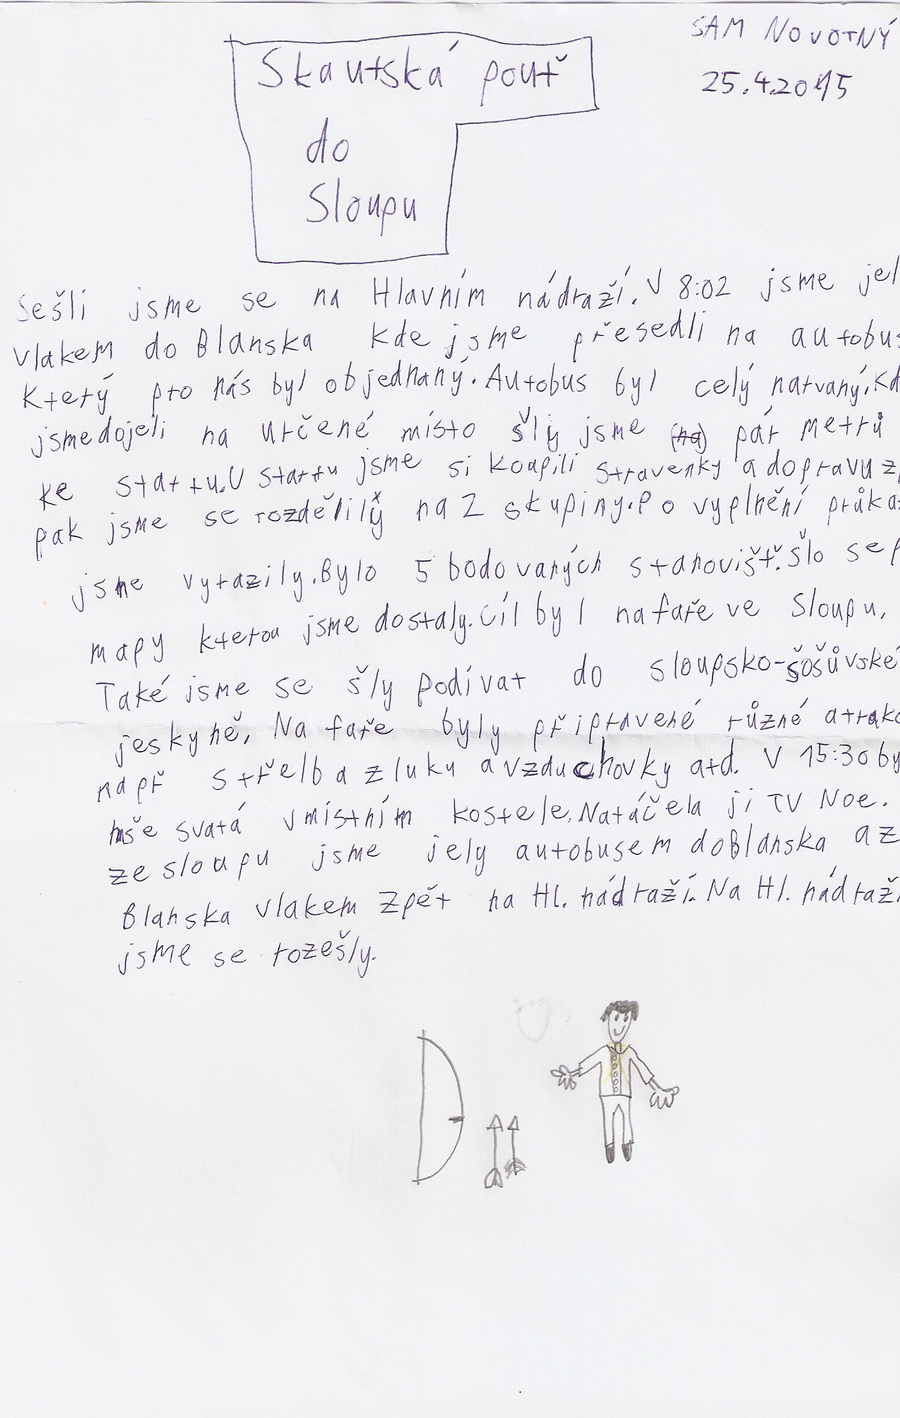 SAM NOVOTNÝ
25.4.2015
Skautská pouť
do
Sloupu
Sešli jsme se na Hlavním nádraží. V 8:02 jsme jel
vlakem do Blanska kde jsme přesedli na autobus
Který pro nás byl objednaný. Autobus byl celý narvaný. Kd
jsme dojeli na určené místo šly jsme (na) pár metrů
ke startu. U startu jsme si koupili stravenky a dopravu z
pak jsme se rozdělily na 2 skupiny. Po vyplnění průka
jsme vyrazily. Bylo 5 bodovaných stanovišť. šlo se p
mapy kterou jsme dostaly. Cíl byl na faře ve Sloupu,
Také jsme se šly podívat do sloupsko-šošůvské
jeskyně. Na faře byly připravené různé atrak
např střelba z luku a vzduchovky atd. V 15:30 by
mše svatá v místním kostele. Natáčela ji TV Noe.
ze sloupu jsme jely autobusem do Blanska a z
Blanska vlakem Zpět na Hl. nádraží. Na Hl. nádraží
jsme se rozešly.